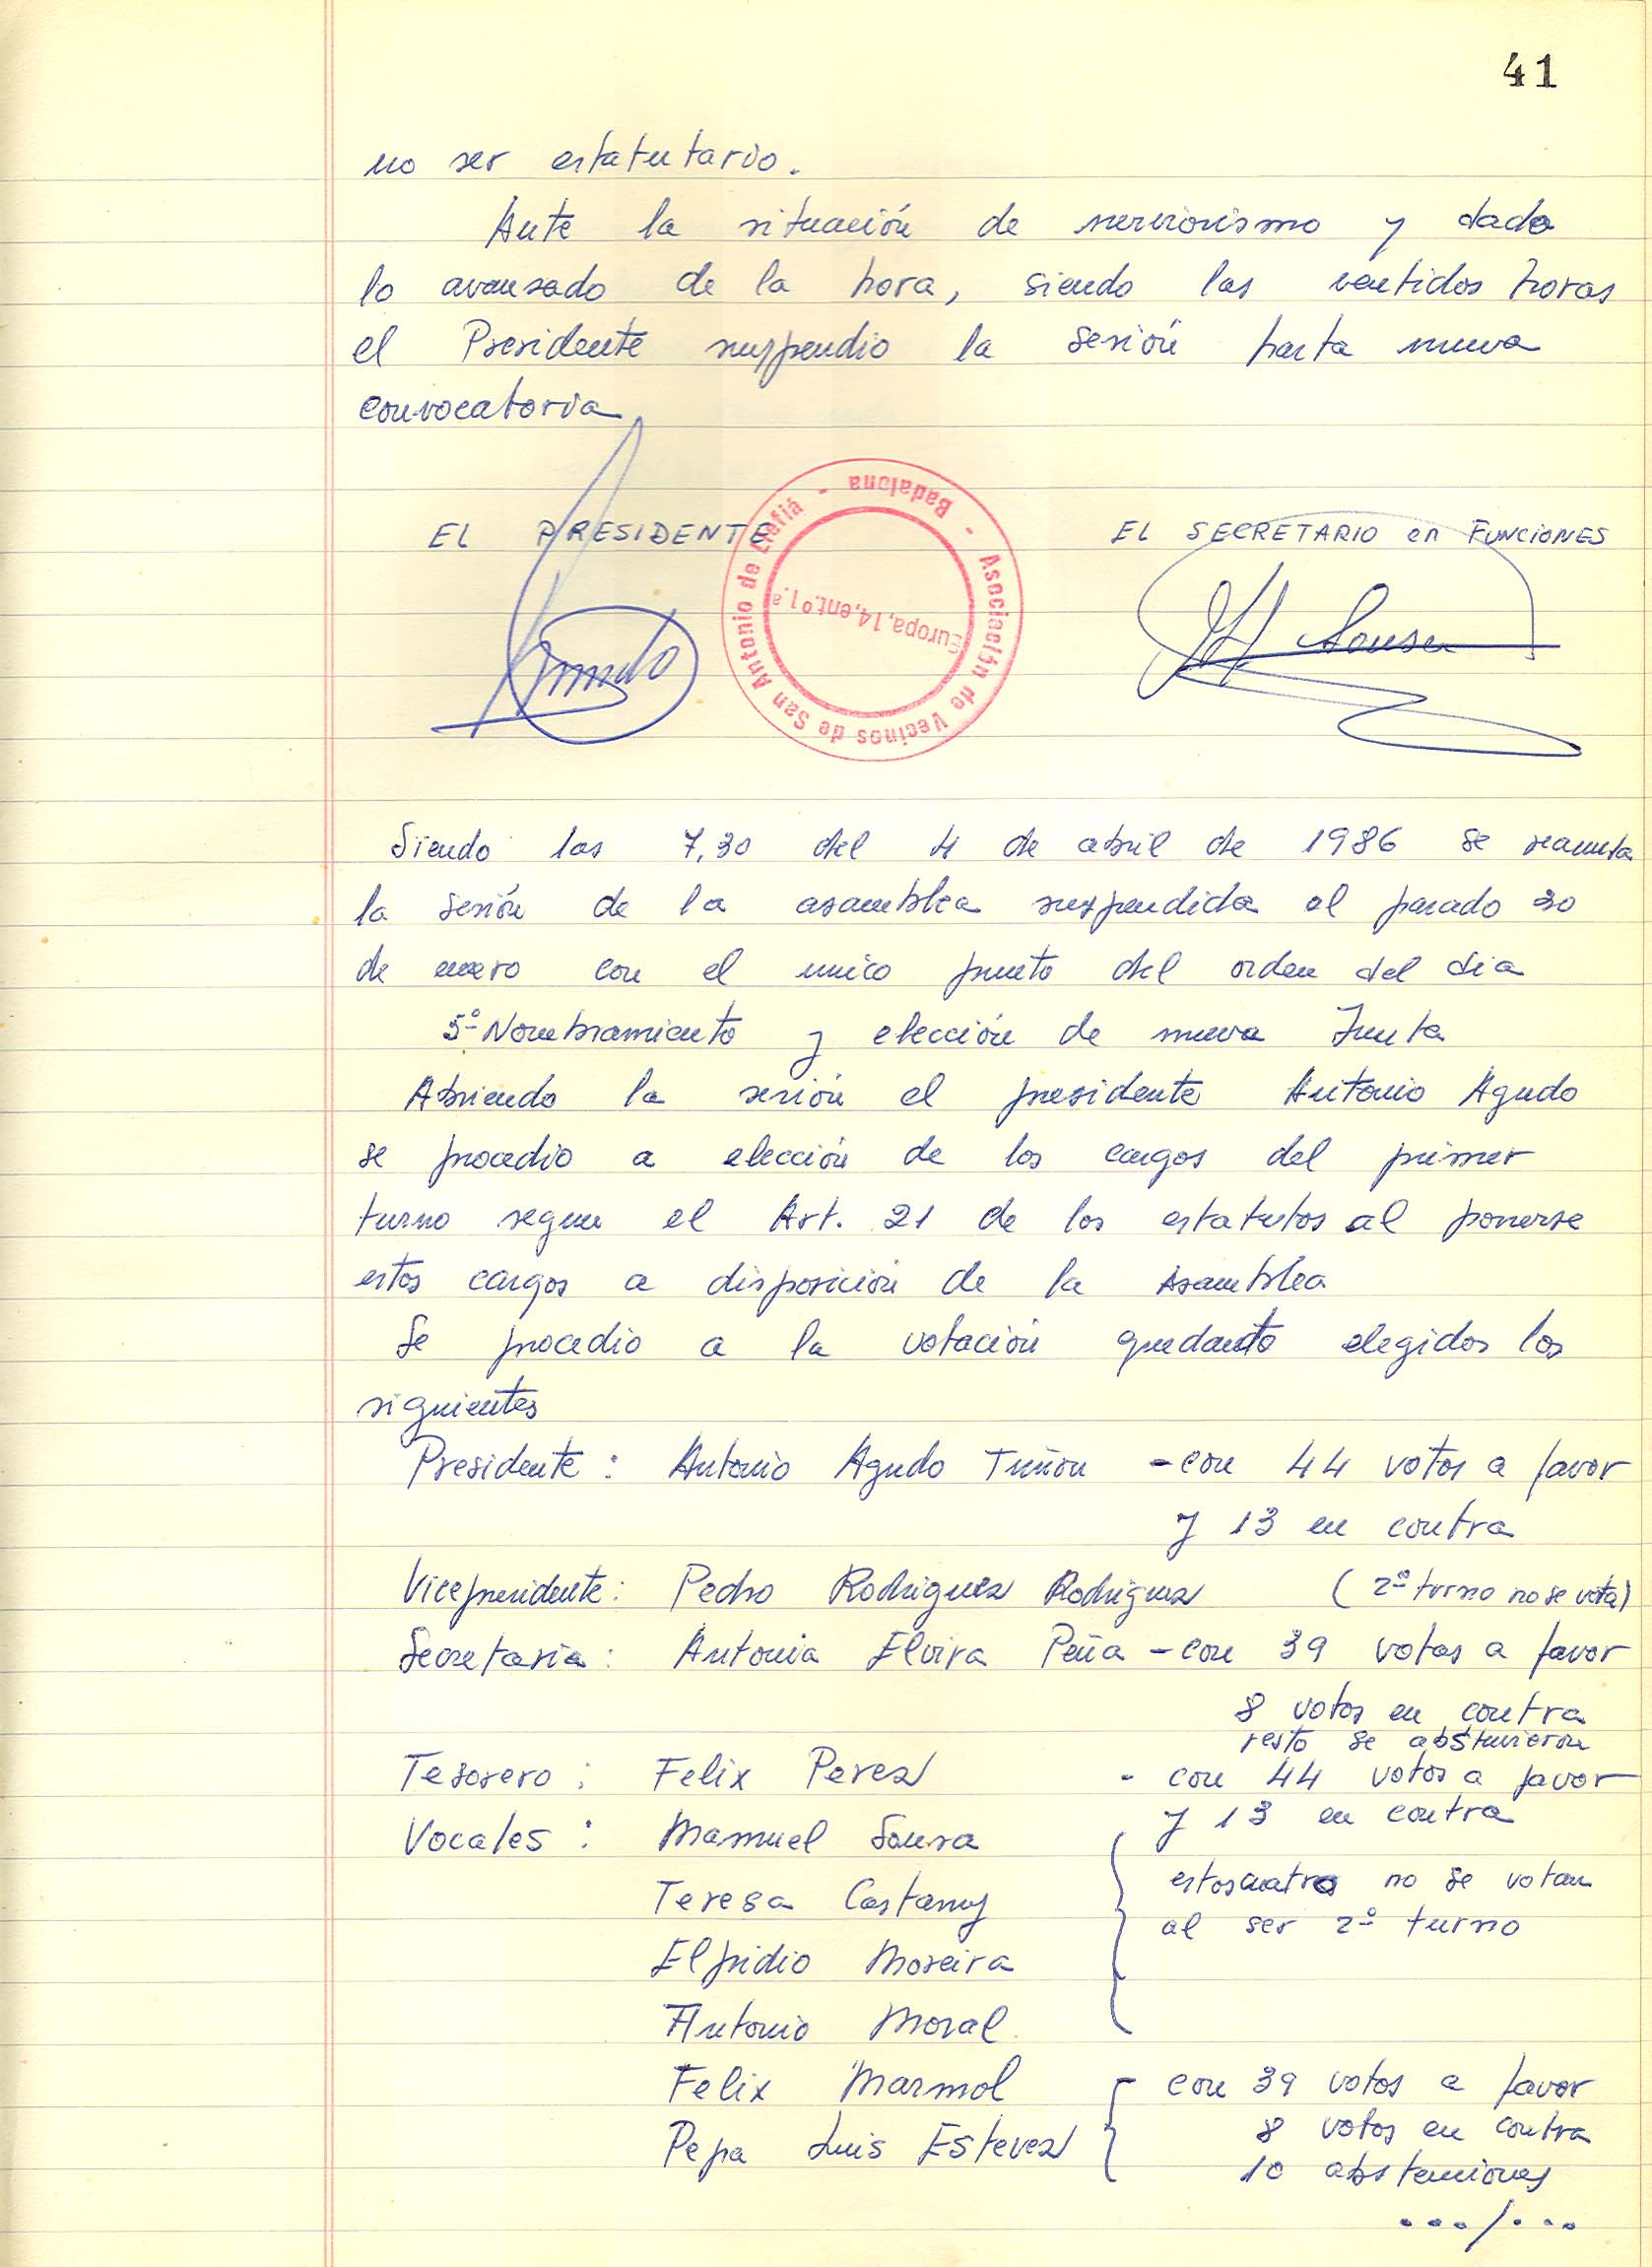 41
no ser estatutario.
Ante la situación de nerviosismo y dado
lo avansado de la hora, siendo las ventidos horas
el Presidente suspendio la sesión hasta nueva
convocatoria
EL PRESIDENTE
EL SECRETARIO en FUNCIONES
Asociación de Vecinos de San Antonio de Llefiá - Badalona -
Europa, 14, ent.º 1.ª
Sousa
Siendo las 7,30 del 4 de abril de 1986 se reanuda
la sesión de la asamblea suspendida el pasado 30
de enero con el unico punto del orden del dia
5º Nombramiento y elección de nueva Junta
Abriendo la sesión el presidente Antonio Agudo
se procedio a elección de los cargos del primer
turno segun el Art. 21 de los estatutos al ponerse
estos cargos a disposición de la Asamblea
Se procedio a la votación quedando elegidos los
siguientes
Presidente : Antonio Agudo Tuñon - con 44 votos a favor
y 13 en contra
Vicepresidente : Pedro Rodriguez Rodriguez (2º turno no se vota)
Secretaria : Antonia Elvira Peña - con 39 votos a favor
8 votos en contra
resto se abstuvieron
Tesorero : Felix Perez - con 44 votos a favor
y 13 en contra
Vocales : Manuel Sousa
Teresa Castany
Elpidio Moreira
Antonio Moral
estos cuatro no se votan
al ser 2º turno
Felix Marmol
Pepa Luis Estevez
con 39 votos a favor
8 votos en contra
10 abstenciones
.../...